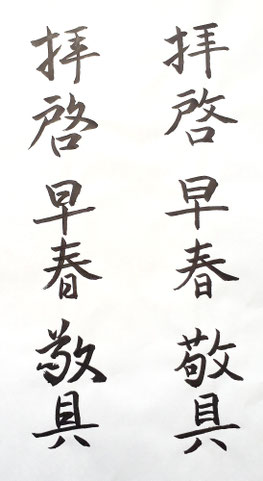 拝啓早春敬具
拝啓早春敬具